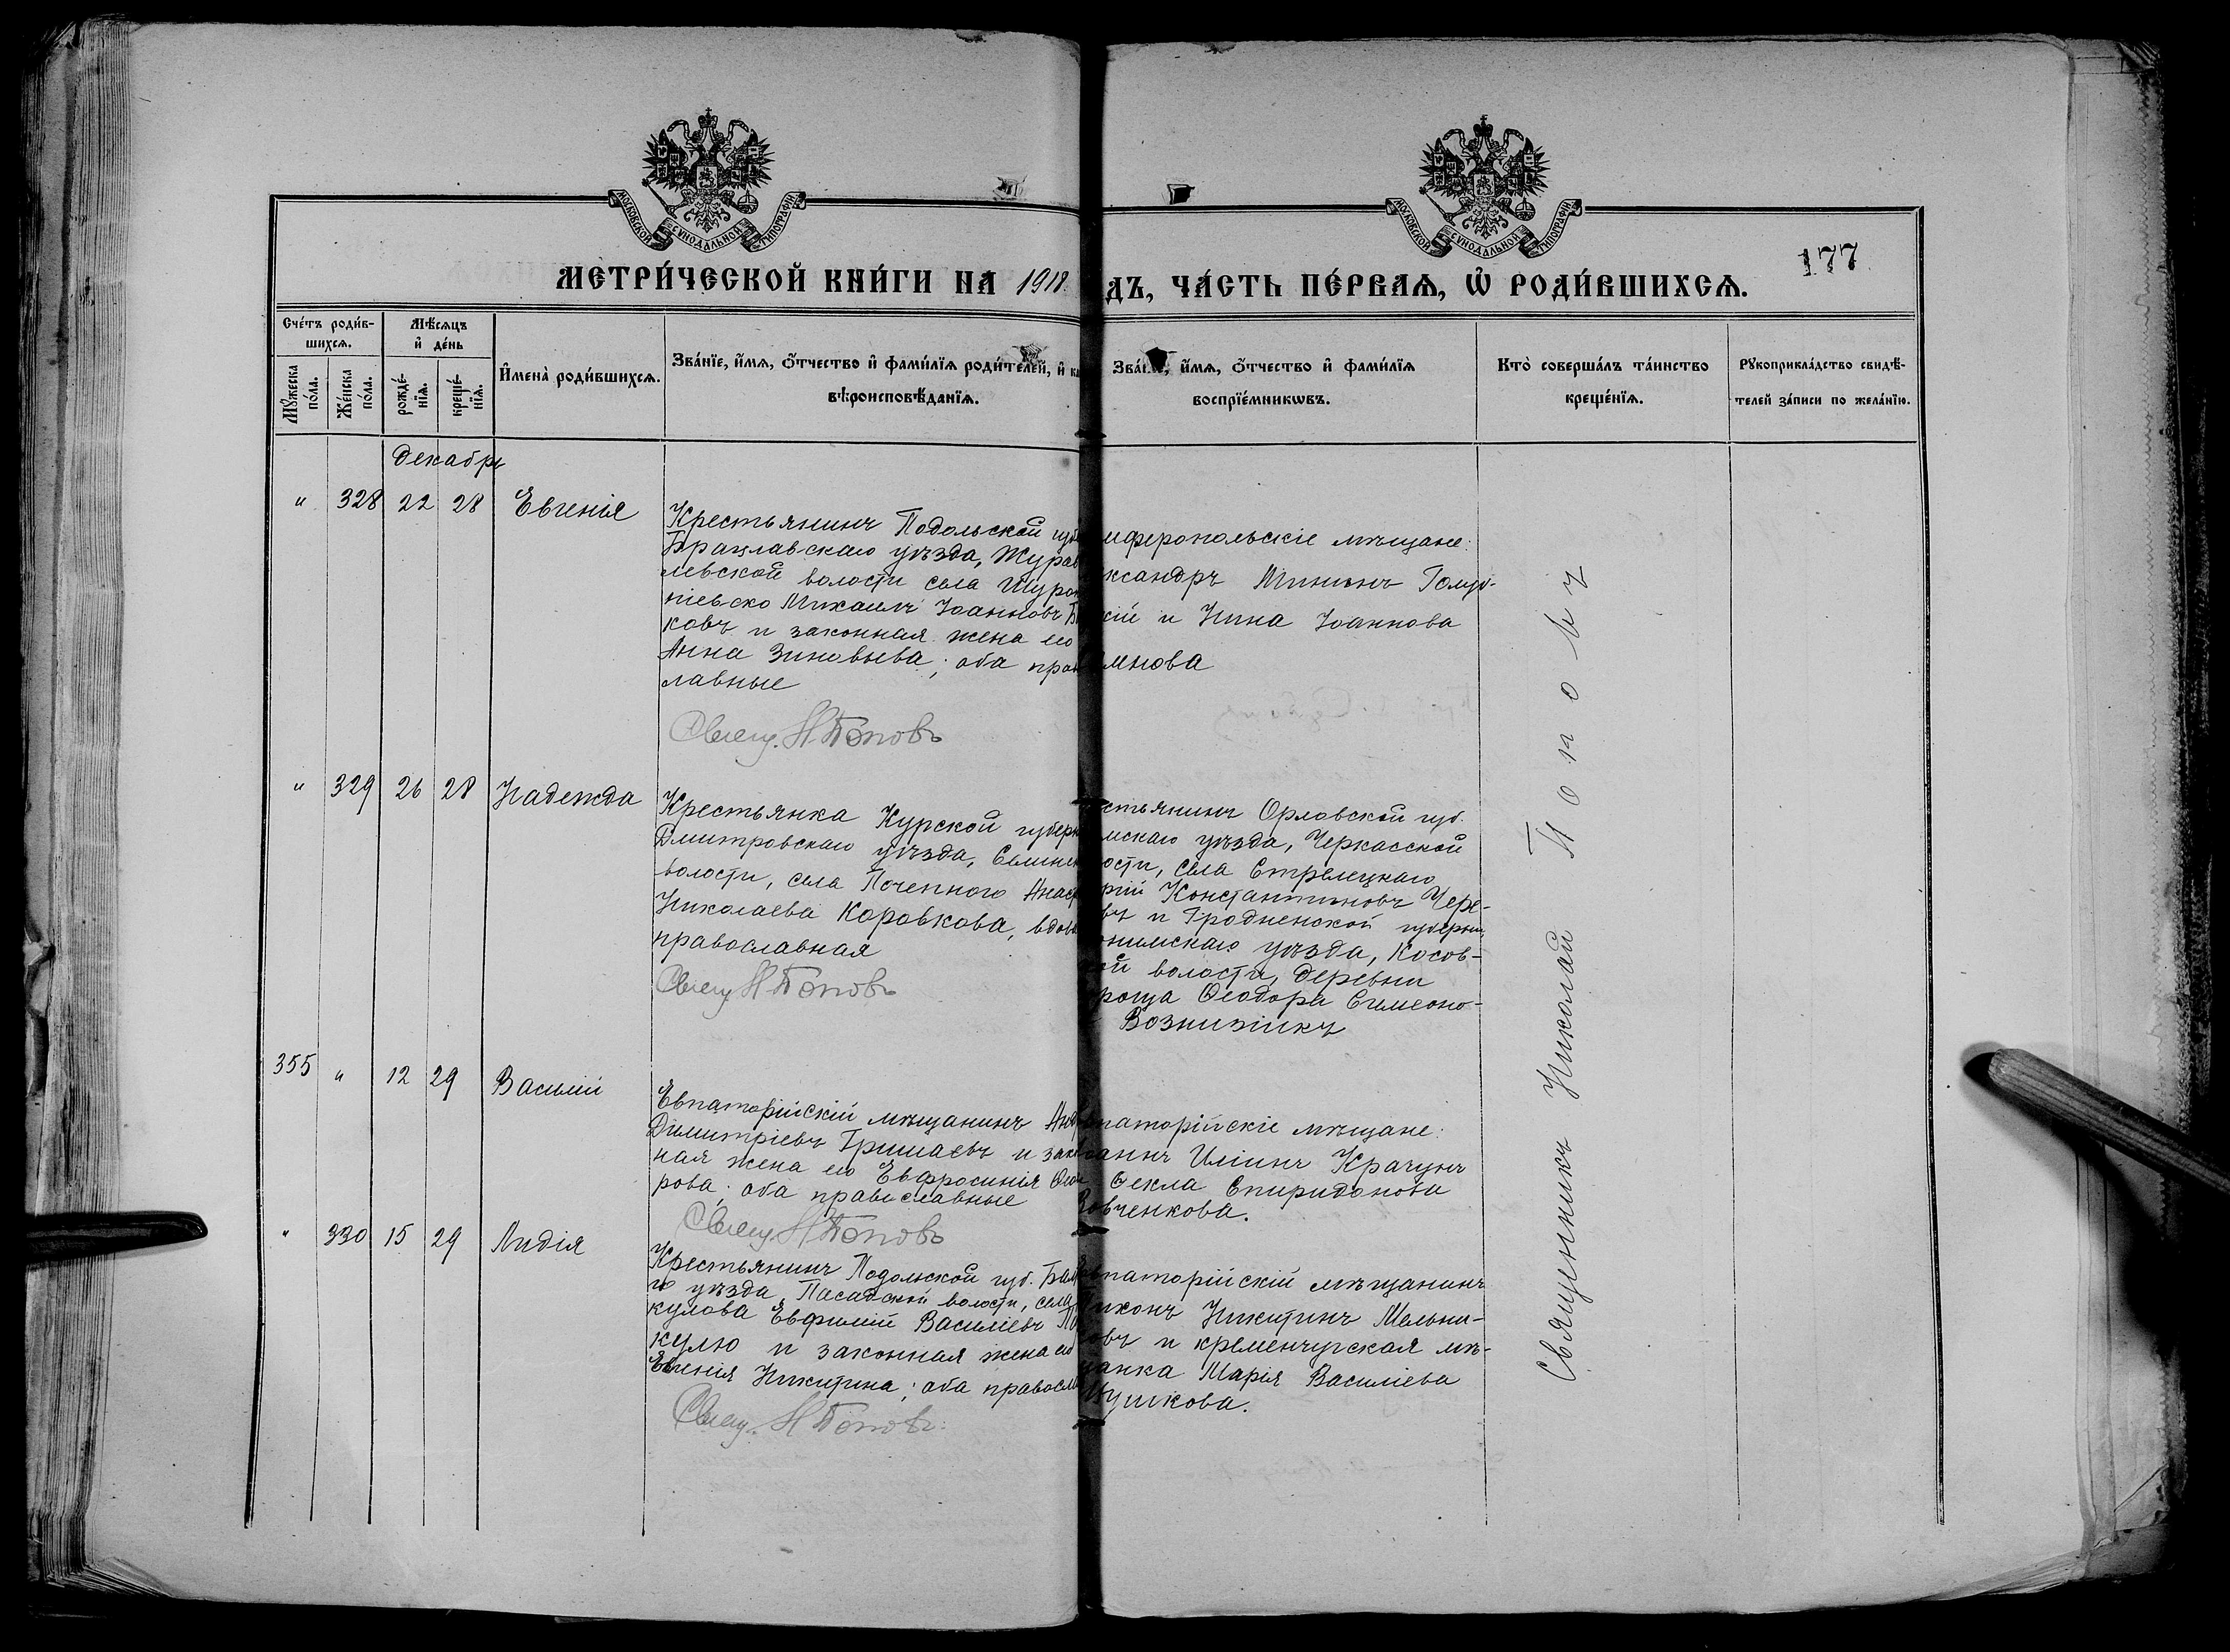 МОСКОВСКОЙ СѴНОДАЛЬНОЙ ТИПОГРАФІИ
МОСКОВСКОЙ СѴНОДАЛЬНОЙ ТИПОГРАФІИ
177
МЕТРИ́ЧЕСКОЙ КНИ́ГИ НА 1918
ДЪ, ЧА́СТЬ ПЕ́РВАѦ, Ѡ҆ РОДИ́ВШИХСѦ.
Сче́тъ роди́в-
шихсѧ.
Мѣ́сѧцъ
и҆ де́нь
Мꙋ́жеска
по́ла.
Же́нска
по́ла.
рожде́-
нїѧ.
креще́-
нїѧ.
И҆мена̀ роди́вшихсѧ.
Зва́нїе, и҆́мѧ, ѻ҆́тчество и҆ фами́лїѧ роди́телей, и҆ к
вѣроисповѣ́данїѧ.
Зва́ и҆́мѧ, ѻ҆́тчество и҆ фами́лїѧ
воспрїе́мникѡвъ.
Кто̀ соверша́лъ та́инство
креще́нїѧ.
Рꙋкоприкла́дство свидѣ́-
телей за́писи по жела́нїю.
Декабрь
" 328 22 28 Евгенія
Крестьянинъ Подольской губ
Брацлавскаго уѣзда, Журав
левской волости села Шуро
піевско Михаилъ Іоанновъ
ковъ и законная жена его
Анна Зиновьева; оба прав
лавные
Свящ. Н Поповъ
феропольскіе мѣщане:
ксандръ Мининъ Голуб-
кій и Нина Іоаннова
мнова
" 329 26 28 Надежда
Крестьянка Курской губерн
Дмитровскаго уѣзда,
волости, села Почепного Анас
Николаева Коровкова, вдов
православная
Свящ Н Поповъ
стьянинъ Орловской губ.
мскаго уѣзда, Черкасской
ости, села Стрелецкаго
рій Константиновъ Чере-
въ и Гродненской губерніи
онимскаго уѣзда, Косов-
ой волости, деревни
роща Ѳеодора Симеоно-
355 " 12 29 Василій
Евпаторійскій мѣщанинъ Ан
Димитріевъ Гришаевъ и зак
ная жена его Евфросинія Ѳео
рова; оба православные
Свящ Н Поповъ
паторійскіе мѣщане:
аннъ Иліинъ Крачунъ
Ѳекла Спиридонова
Вовченкова.
" 330 15 29 Лидія
Крестьянинъ Подольской губ. Бал
го уѣзда, Пасадской волости, села
кулова Евфимій Василіевъ По
кулю и законная жена его
Евгенія Никитина; оба правосла
Свящ. Н Поповъ
паторійскій мѣщанинъ
иконъ Никитинъ Мельни-
овъ и кременчугская мѣ-
щанка Марія Василіева
ушкова.
Священникъ Николай Поповъ